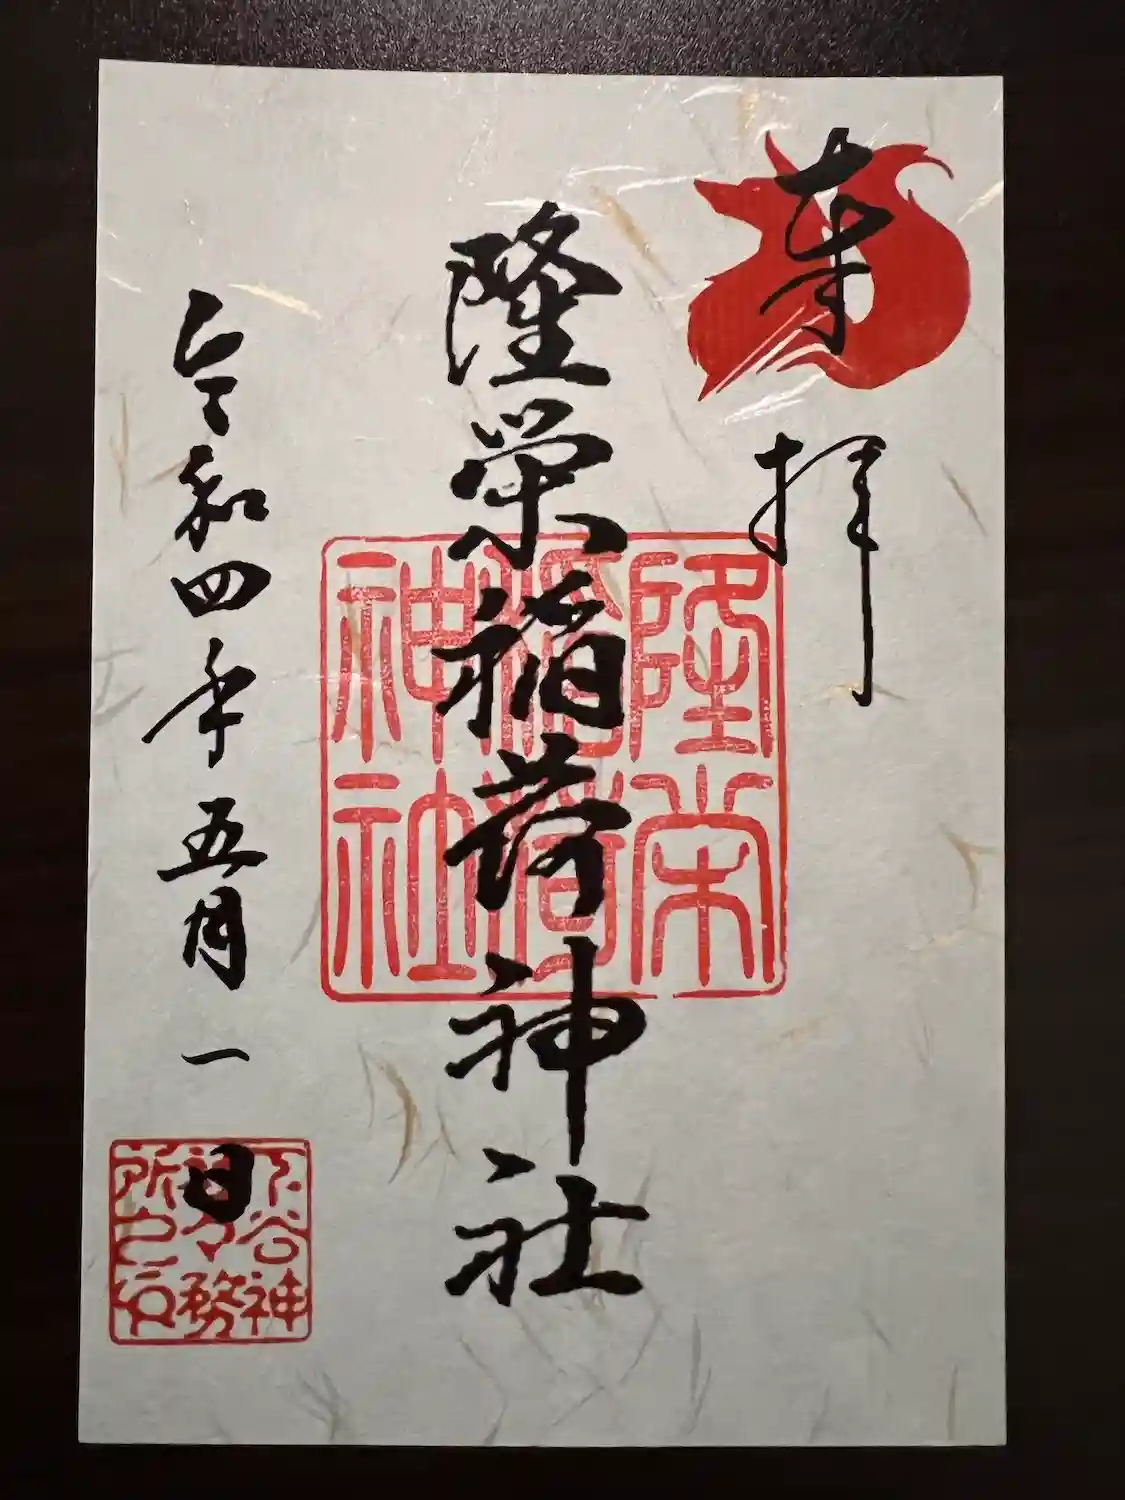 奉拝
隆栄稲荷神社
隆栄
稲荷
神社
令和四年五月一日
下谷神
社々務
所之印